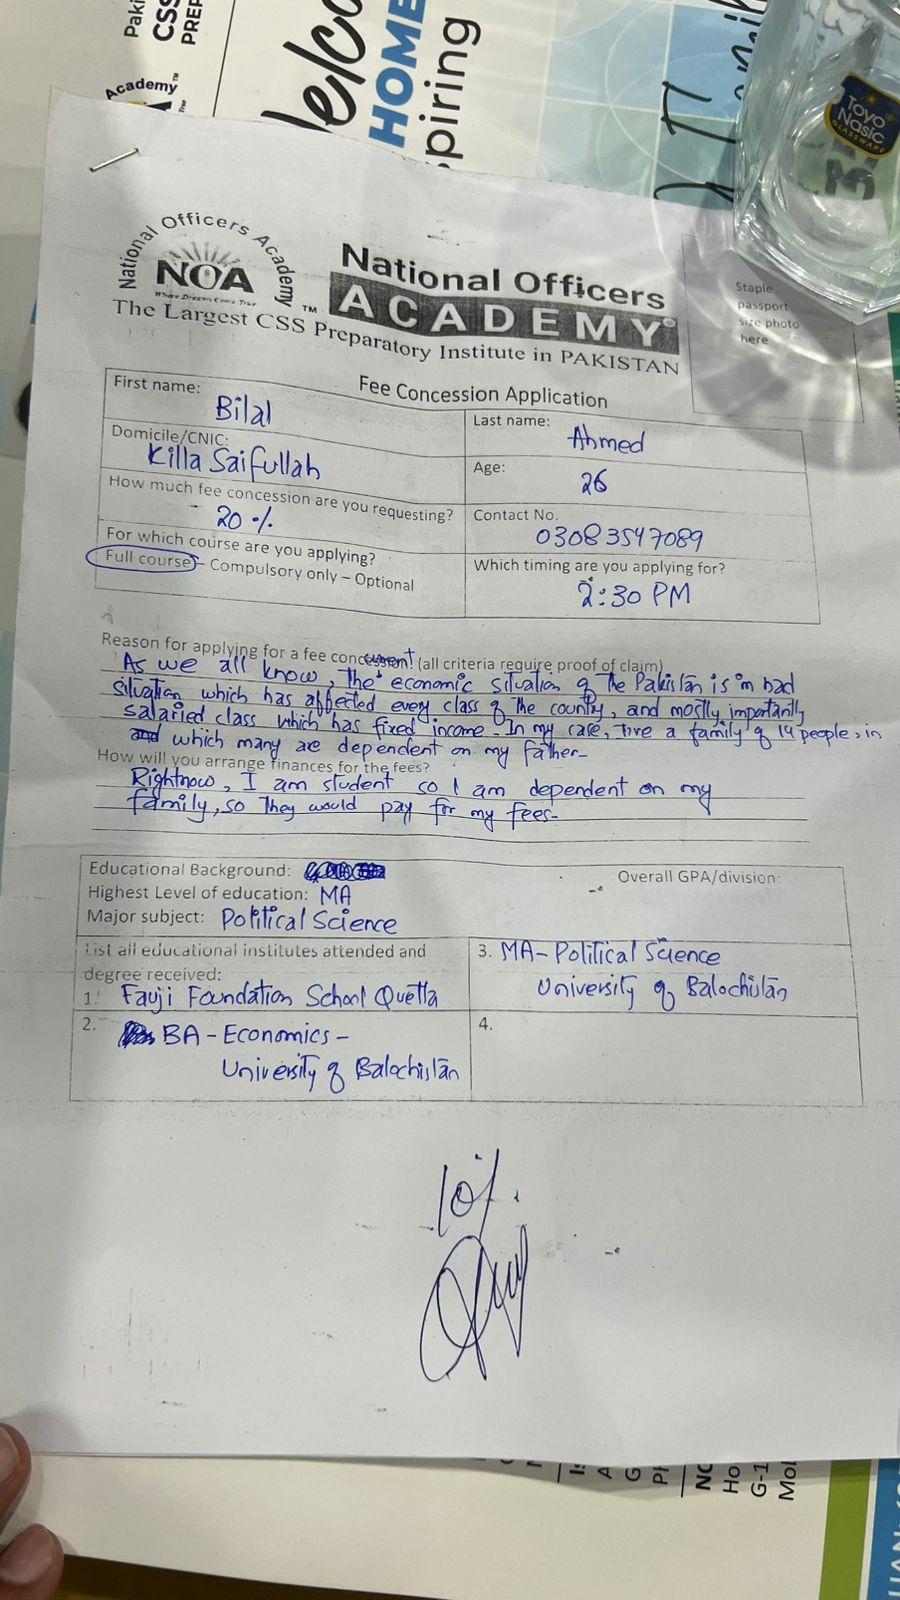 Paki
CSS
PREP
Academy™
True
Welco
HOME
spiring
Toyo
Nasic
GLASSWARE
National Officers Academy
NOA
Where Dreams Come True
™
National Officers
ACADEMY®
The Largest CSS Preparatory Institute in PAKISTAN
Staple
passport
size photo
here
Fee Concession Application
First name: Bilal
Last name: Ahmed
Domicile/CNIC: Killa Saifullah
Age: 26
How much fee concession are you requesting? 20%
Contact No. 03083547089
For which course are you applying?
Full course – Compulsory only – Optional
Which timing are you applying for? 2:30 PM
Reason for applying for a fee (all criteria require proof of claim)
As we all know, the economic situation of The Pakistān is in bad
situation which has affected every class of the country, and mostly importantly
salaried class which has fixed income. In my case, a family of 14 people, in
and which many are dependent on my father-
How will you arrange finances for the fees?
Rightnow, I am student so I am dependent on my
family, so They would pay for my fees-
Educational Background:
Overall GPA/division:
Highest Level of education: MA
Major subject: Political Science
List all educational institutes attended and
degree received:
1. Fauji Foundation School Quetta
2. BA - Economics -
University of Balochistān
3. MA - Political Science
University of Balochistān
4.
10%.
A
G
PI
NO
Ho
G-1
Mol